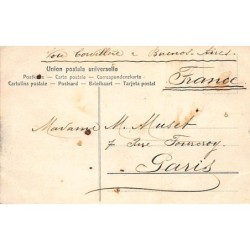 Voie Cordillère e Buenos-Aires
France
Union postale universelle
Postkarten — Carte postale — Correspondenzkarte
Cartolina postale — Postcard — Briefkaart — Tarjeta postal
Madame M. Muset
7 Rue Fourcroy
Paris